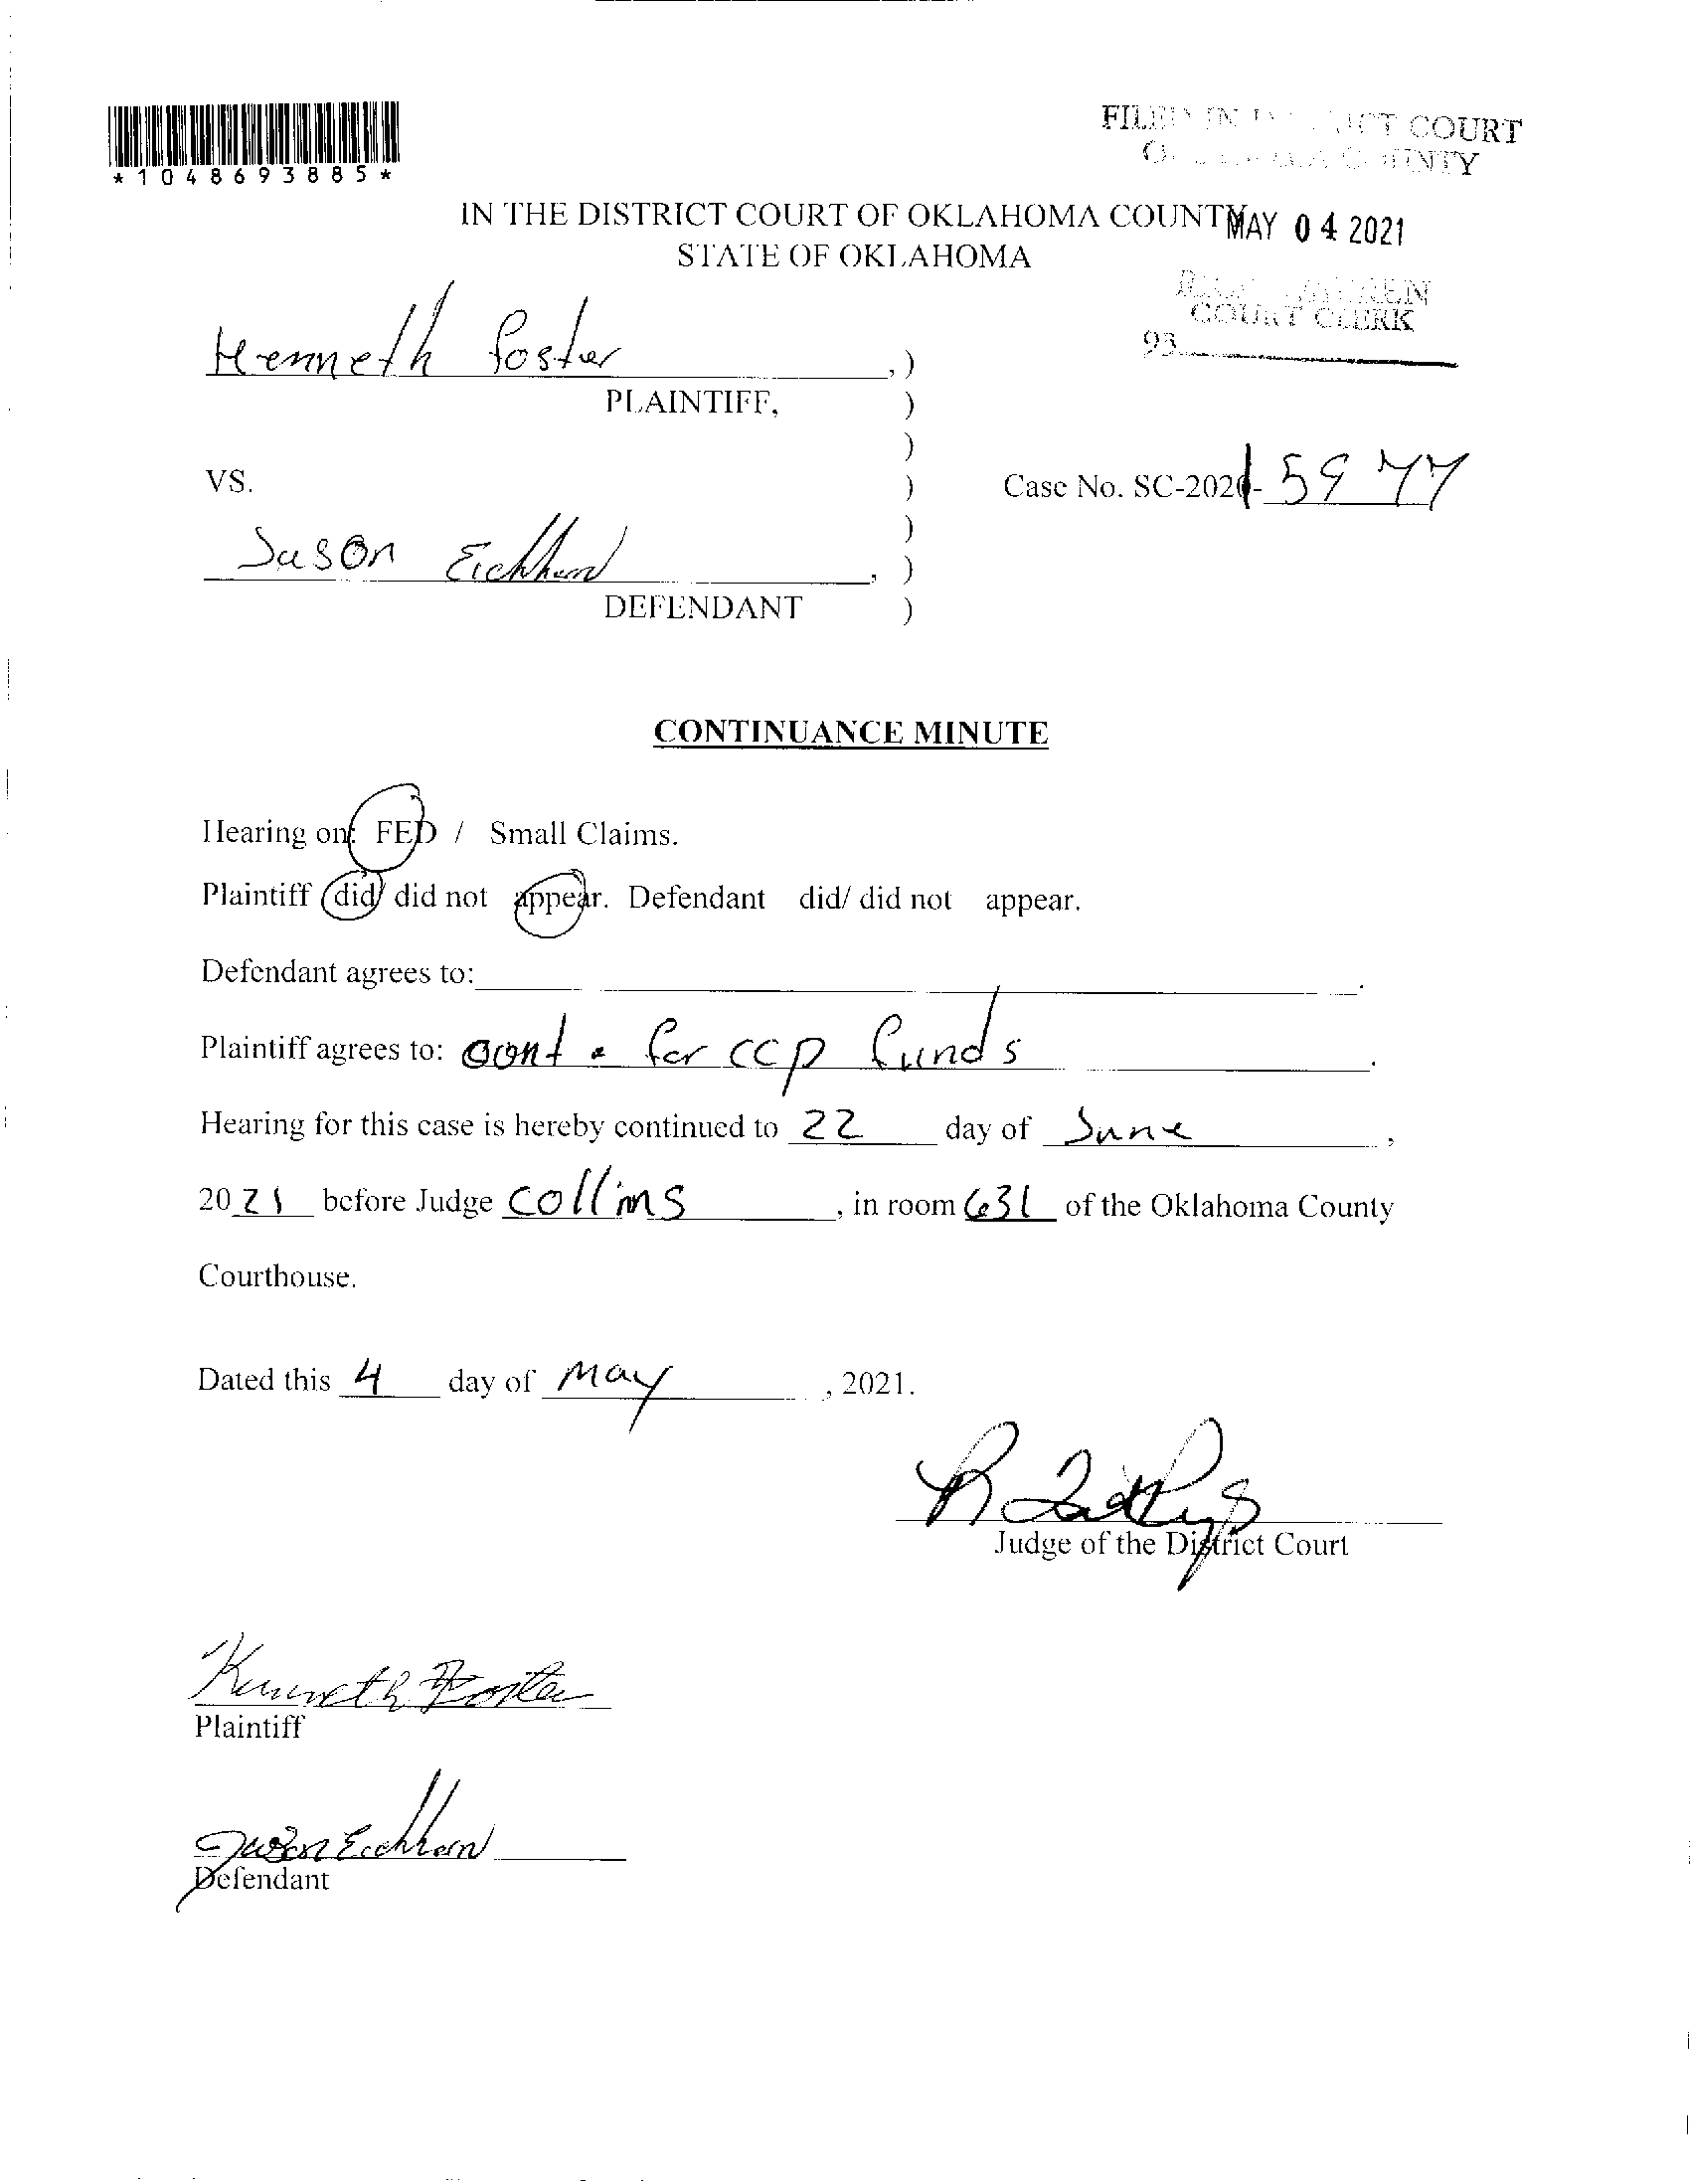 *1048693885*
FILED IN DISTRICT COURT
COUNTY
IN THE DISTRICT COURT OF OKLAHOMA COUNTY MAY 04 2021
STATE OF OKLAHOMA
COURT CLERK
93
Kenneth Foster ,)
PLAINTIFF, )
)
VS. ) Case No. SC-2021- 5977
)
Jason Eichhorn , )
DEFENDANT )
CONTINUANCE MINUTE
Hearing on: FED / Small Claims.
Plaintiff did/ did not appear. Defendant did/ did not appear.
Defendant agrees to: .
Plaintiff agrees to: cont. for ccp funds .
Hearing for this case is hereby continued to 22 day of June ,
2021 before Judge Collins , in room 631 of the Oklahoma County
Courthouse.
Dated this 4 day of May , 2021.
Judge of the District Court
Kenneth Foster
Plaintiff
Jason Eichhorn
Defendant